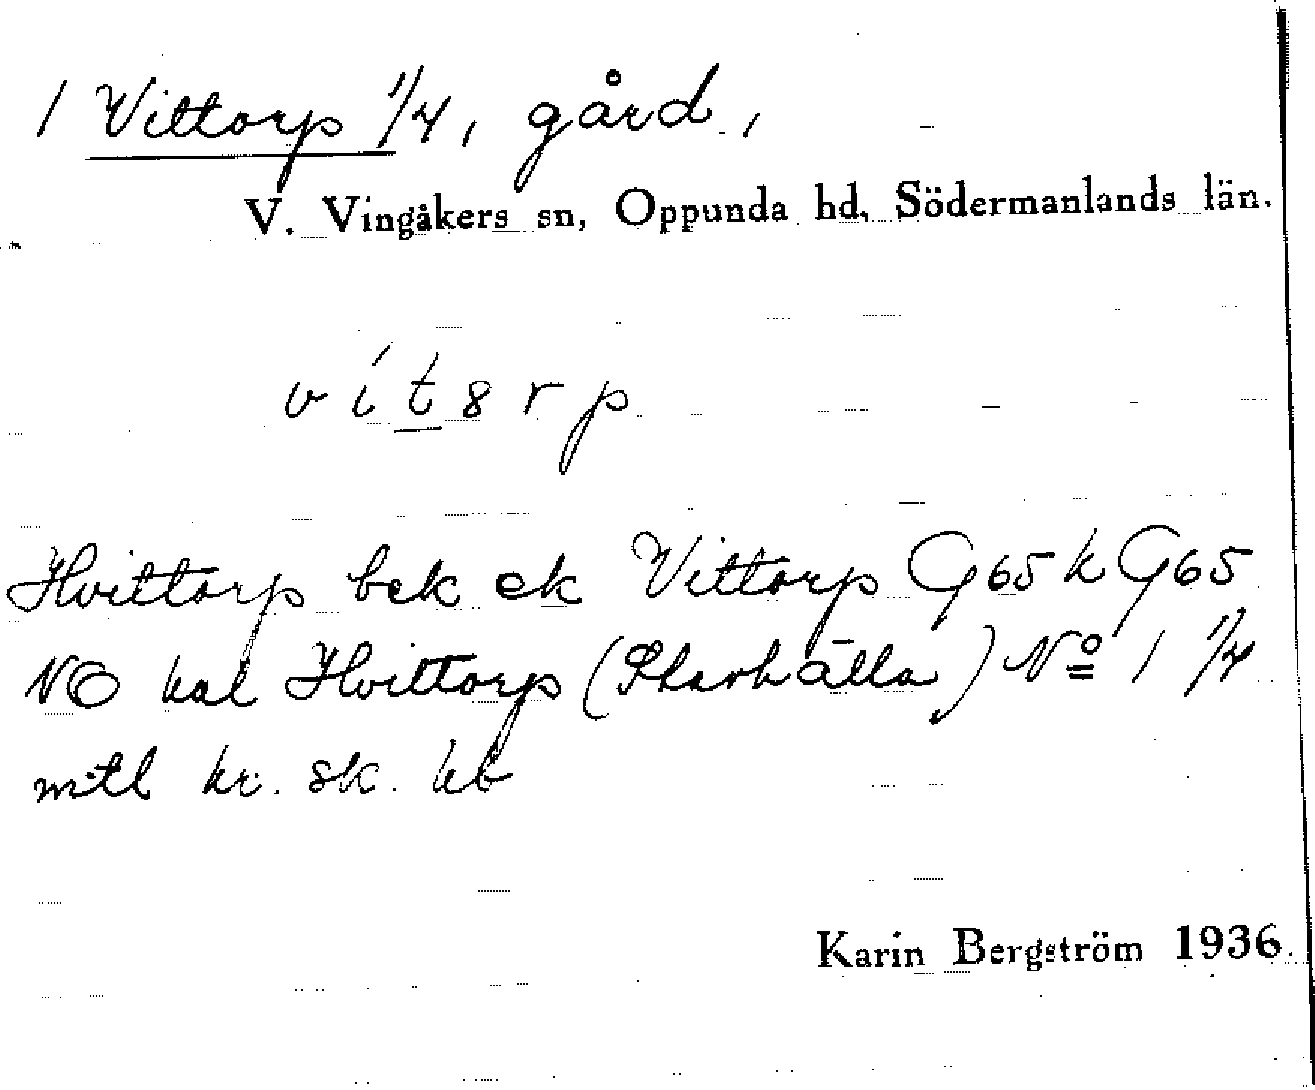 1 Vittorp 1/4, gård,
V. Vingåkers sn, Oppunda hd, Södermanlands län.
v í t 8 r p
Hvittorp bek ek Vittorp G65 k G65
NO kal Hvittorp (Skarhälla) No 1 1/4
mtl kr. sk. kb
Karin Bergström 1936.